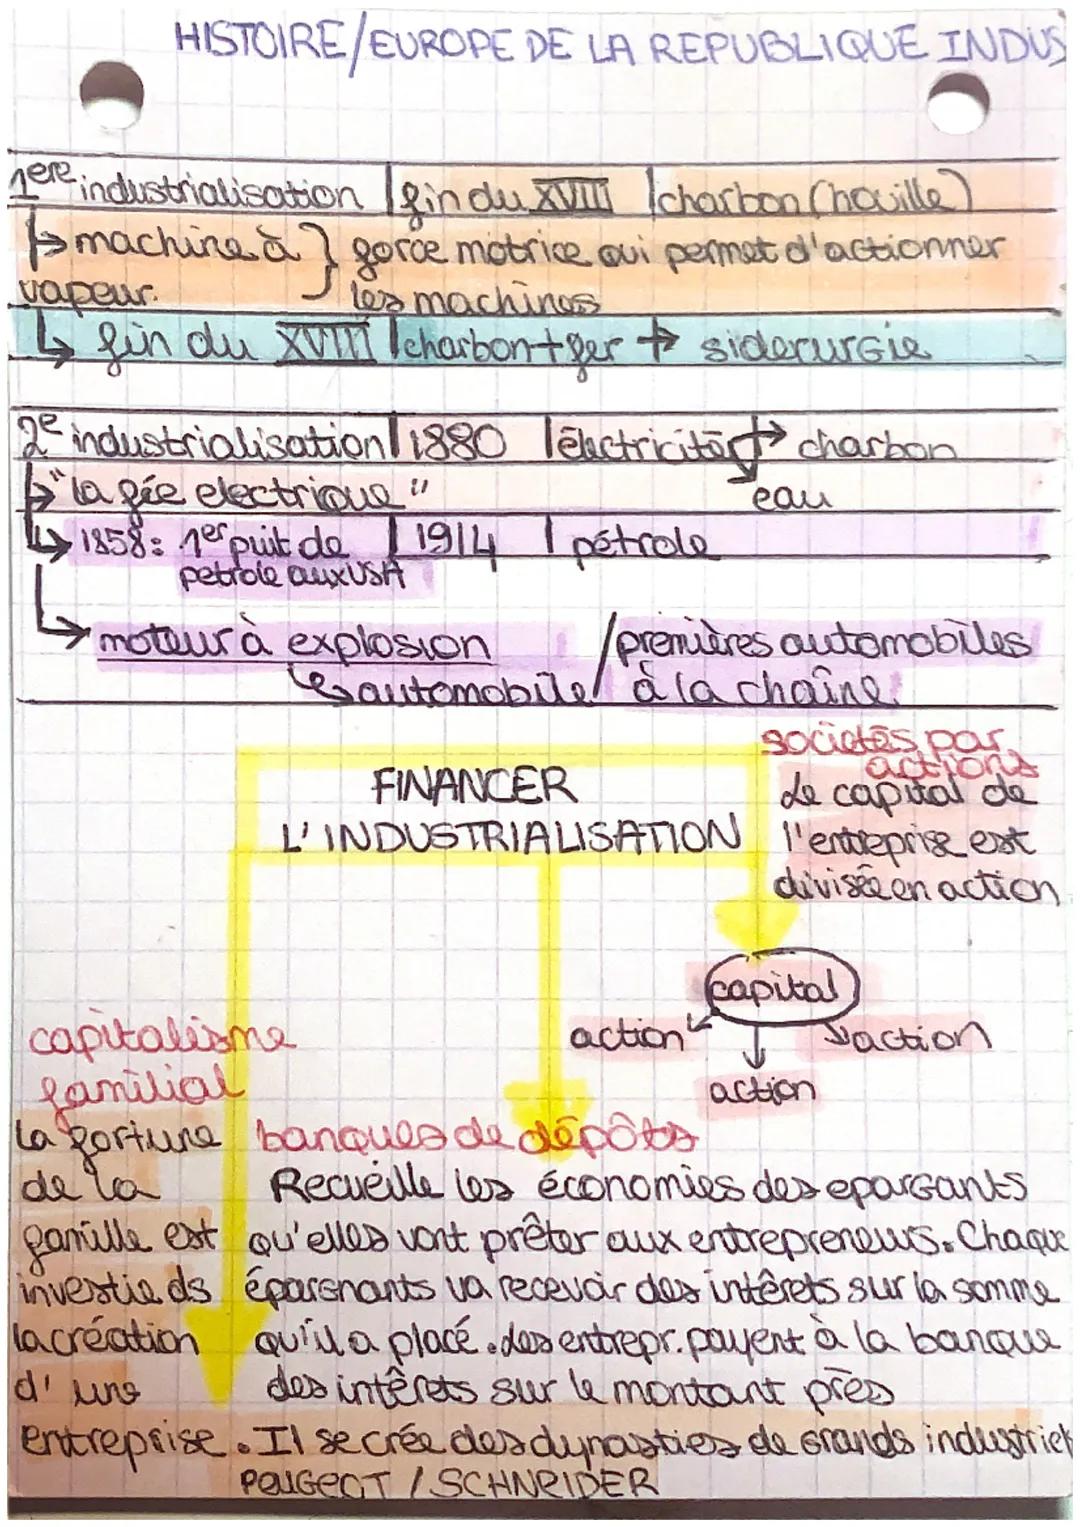 HISTOIRE/EUROPE DE LA REPUBLIQUE INDUS
1ere industrialisation | fin du XVIII | charbon (houille)
↳ machine à } force motrice qui permet d'actionner
vapeur. les machines
↳ fin du XVIII | charbon + fer → siderurgie
2e industrialisation | 1880 | électricité → charbon
↳ "la fée electrique" eau
↳ 1858: 1er puit de | 1914 | pétrole
petrole aux USA
↳ moteur à explosion / premières automobiles
↳ automobile / à la chaîne
FINANCER
L'INDUSTRIALISATION
sociétés par
actions
Le capital de
l'entreprise est
divisée en action
capital
action action
action
capitalisme
familial
La fortune
de la
famille est
investie ds
la création
d'une
entreprise. Il se crée des dynasties de grands industriels
PEUGEOT / SCHNEIDER
banques de dépôts
Recueille les économies des epargants
qu'elles vont prêter aux entrepreneurs. Chaque
épargnants va recevoir des intérêts sur la somme
qu'il a placé. des entrepr. payent à la banque
des intêrets sur le montant près